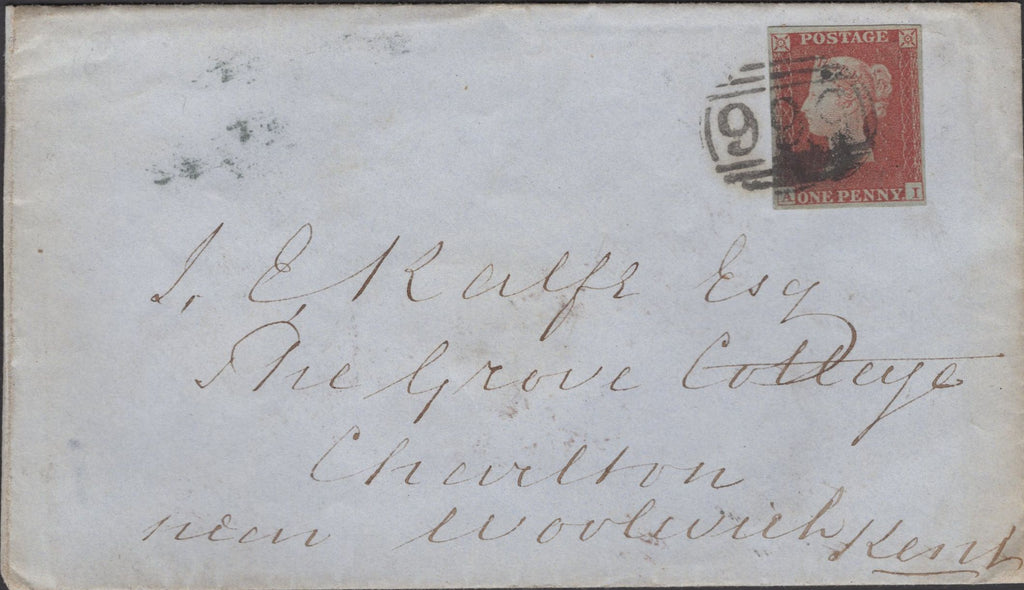 POSTAGE
A ONE PENNY I
J. E. Ralfe Esq
The Grove College
Charlton
near Woolwich Kent